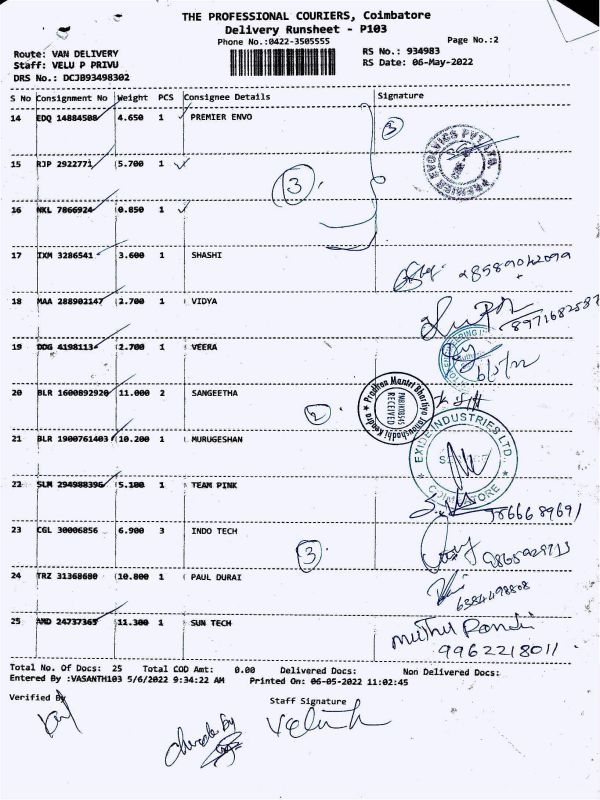 THE PROFESSIONAL COURIERS, Coimbatore
Delivery Runsheet - P103
Phone No.:0422-3505555
Page No.:2
Route: VAN DELIVERY
RS No.: 934983
Staff: VELU P PRIVU
RS Date: 06-May-2022
DRS No.: DCJB93498302
S No Consignment No Weight PCS Consignee Details Signature
14 EDQ 14884508 4.650 1 PREMIER ENVO
3
PREMIER EVOLVICS PVT. LTD.
15 RJP 2922771 5.700 1
3
16 NKL 7866924 0.850 1
17 IXM 3286541 3.600 1 SHASHI
18 MAA 288902147 2.700 1 VIDYA
8971682587
19 DDG 4198113 2.700 1 VEERA
6/5/22
20 BLR 1600892920 11.000 2 SANGEETHA
2
Pradhan Mantri Bhartiya Janaushadhi Kendra
RECEIVED
21 BLR 1900761403 10.200 1 MURUGESHAN
EXIDE INDUSTRIES LTD.,
COIMBATORE
22 SLM 294988396 5.100 1 TEAM PINK
23 CGL 30006856 6.900 3 INDO TECH
3
24 TRZ 31368680 10.800 1 PAUL DURAI
6384698808
25 AMD 24737365 11.300 1 SUN TECH
Muthu Pandi
9962218011
Total No. Of Docs: 25 Total COD Amt: 0.00 Delivered Docs: Non Delivered Docs:
Entered By :VASANTH103 5/6/2022 9:34:22 AM Printed On: 06-05-2022 11:02:45
Verified By
Staff Signature